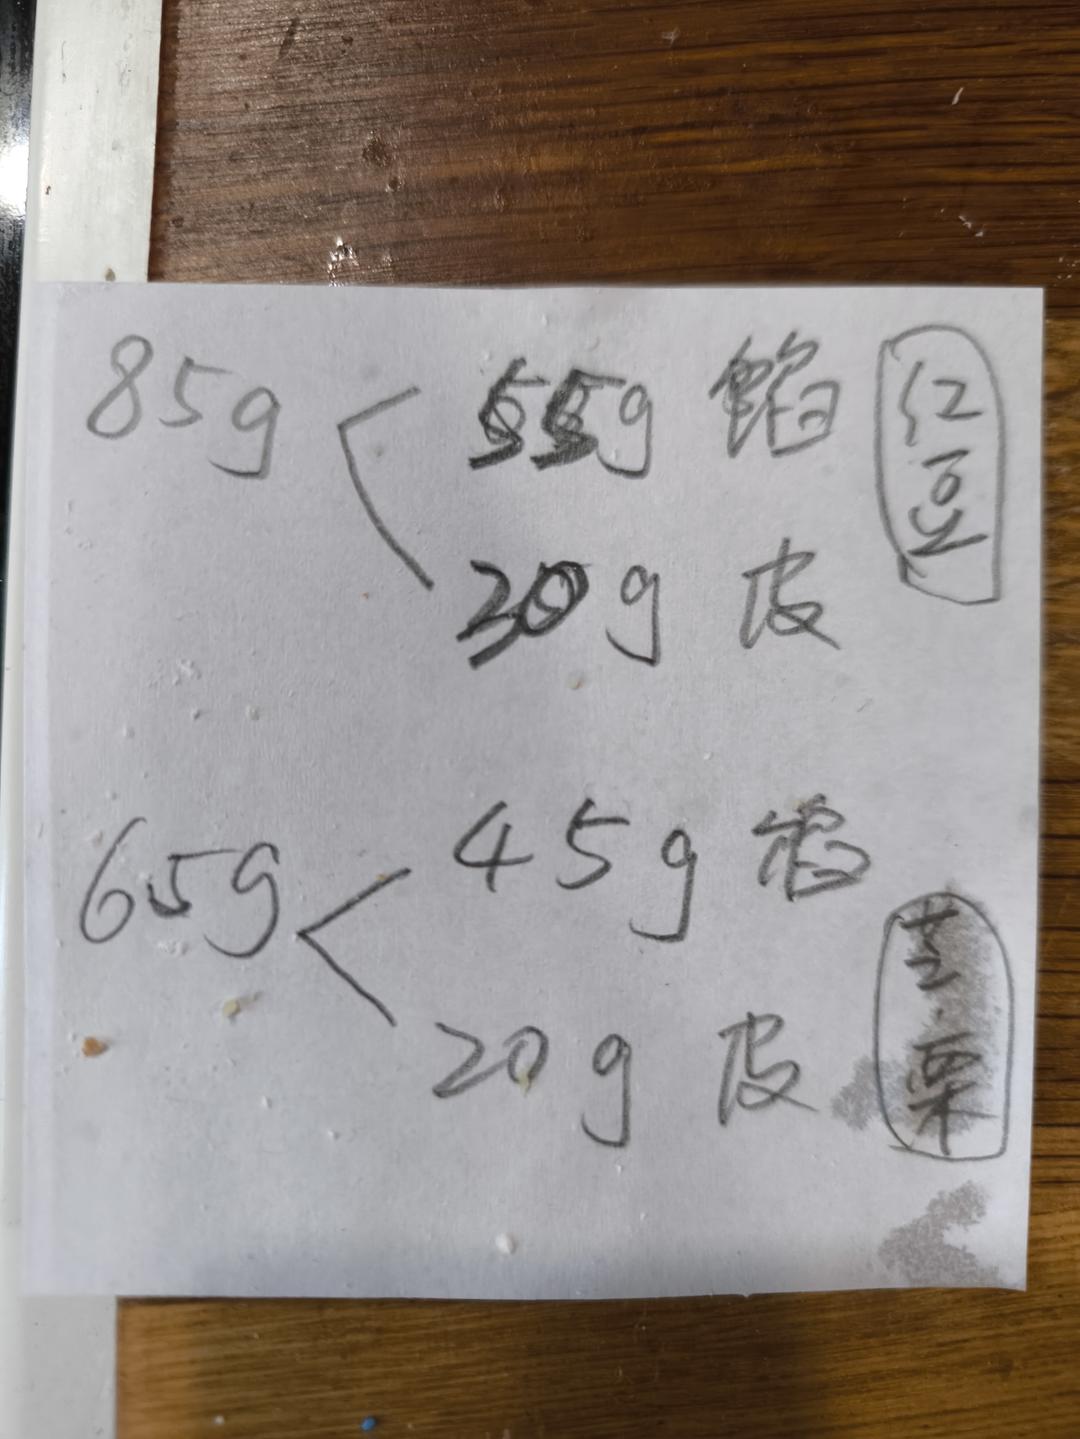 85g
55g 馅
30g 皮
红豆
65g
45g 馅
20g 皮
芝栗